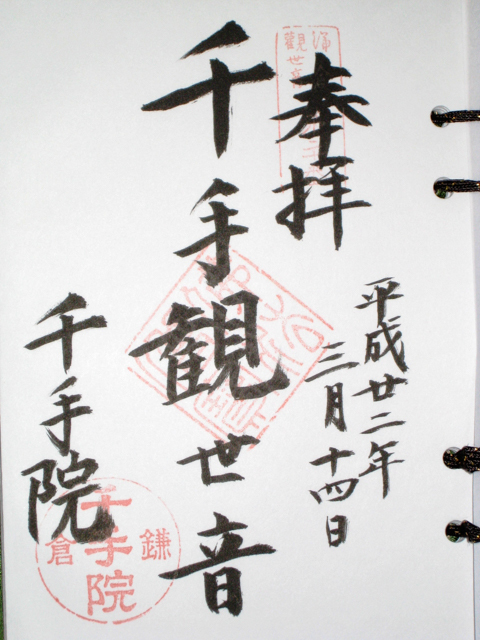 奉拝
平成廿二年
三月十四日
千手観世音
千手院
鎌倉
千手院